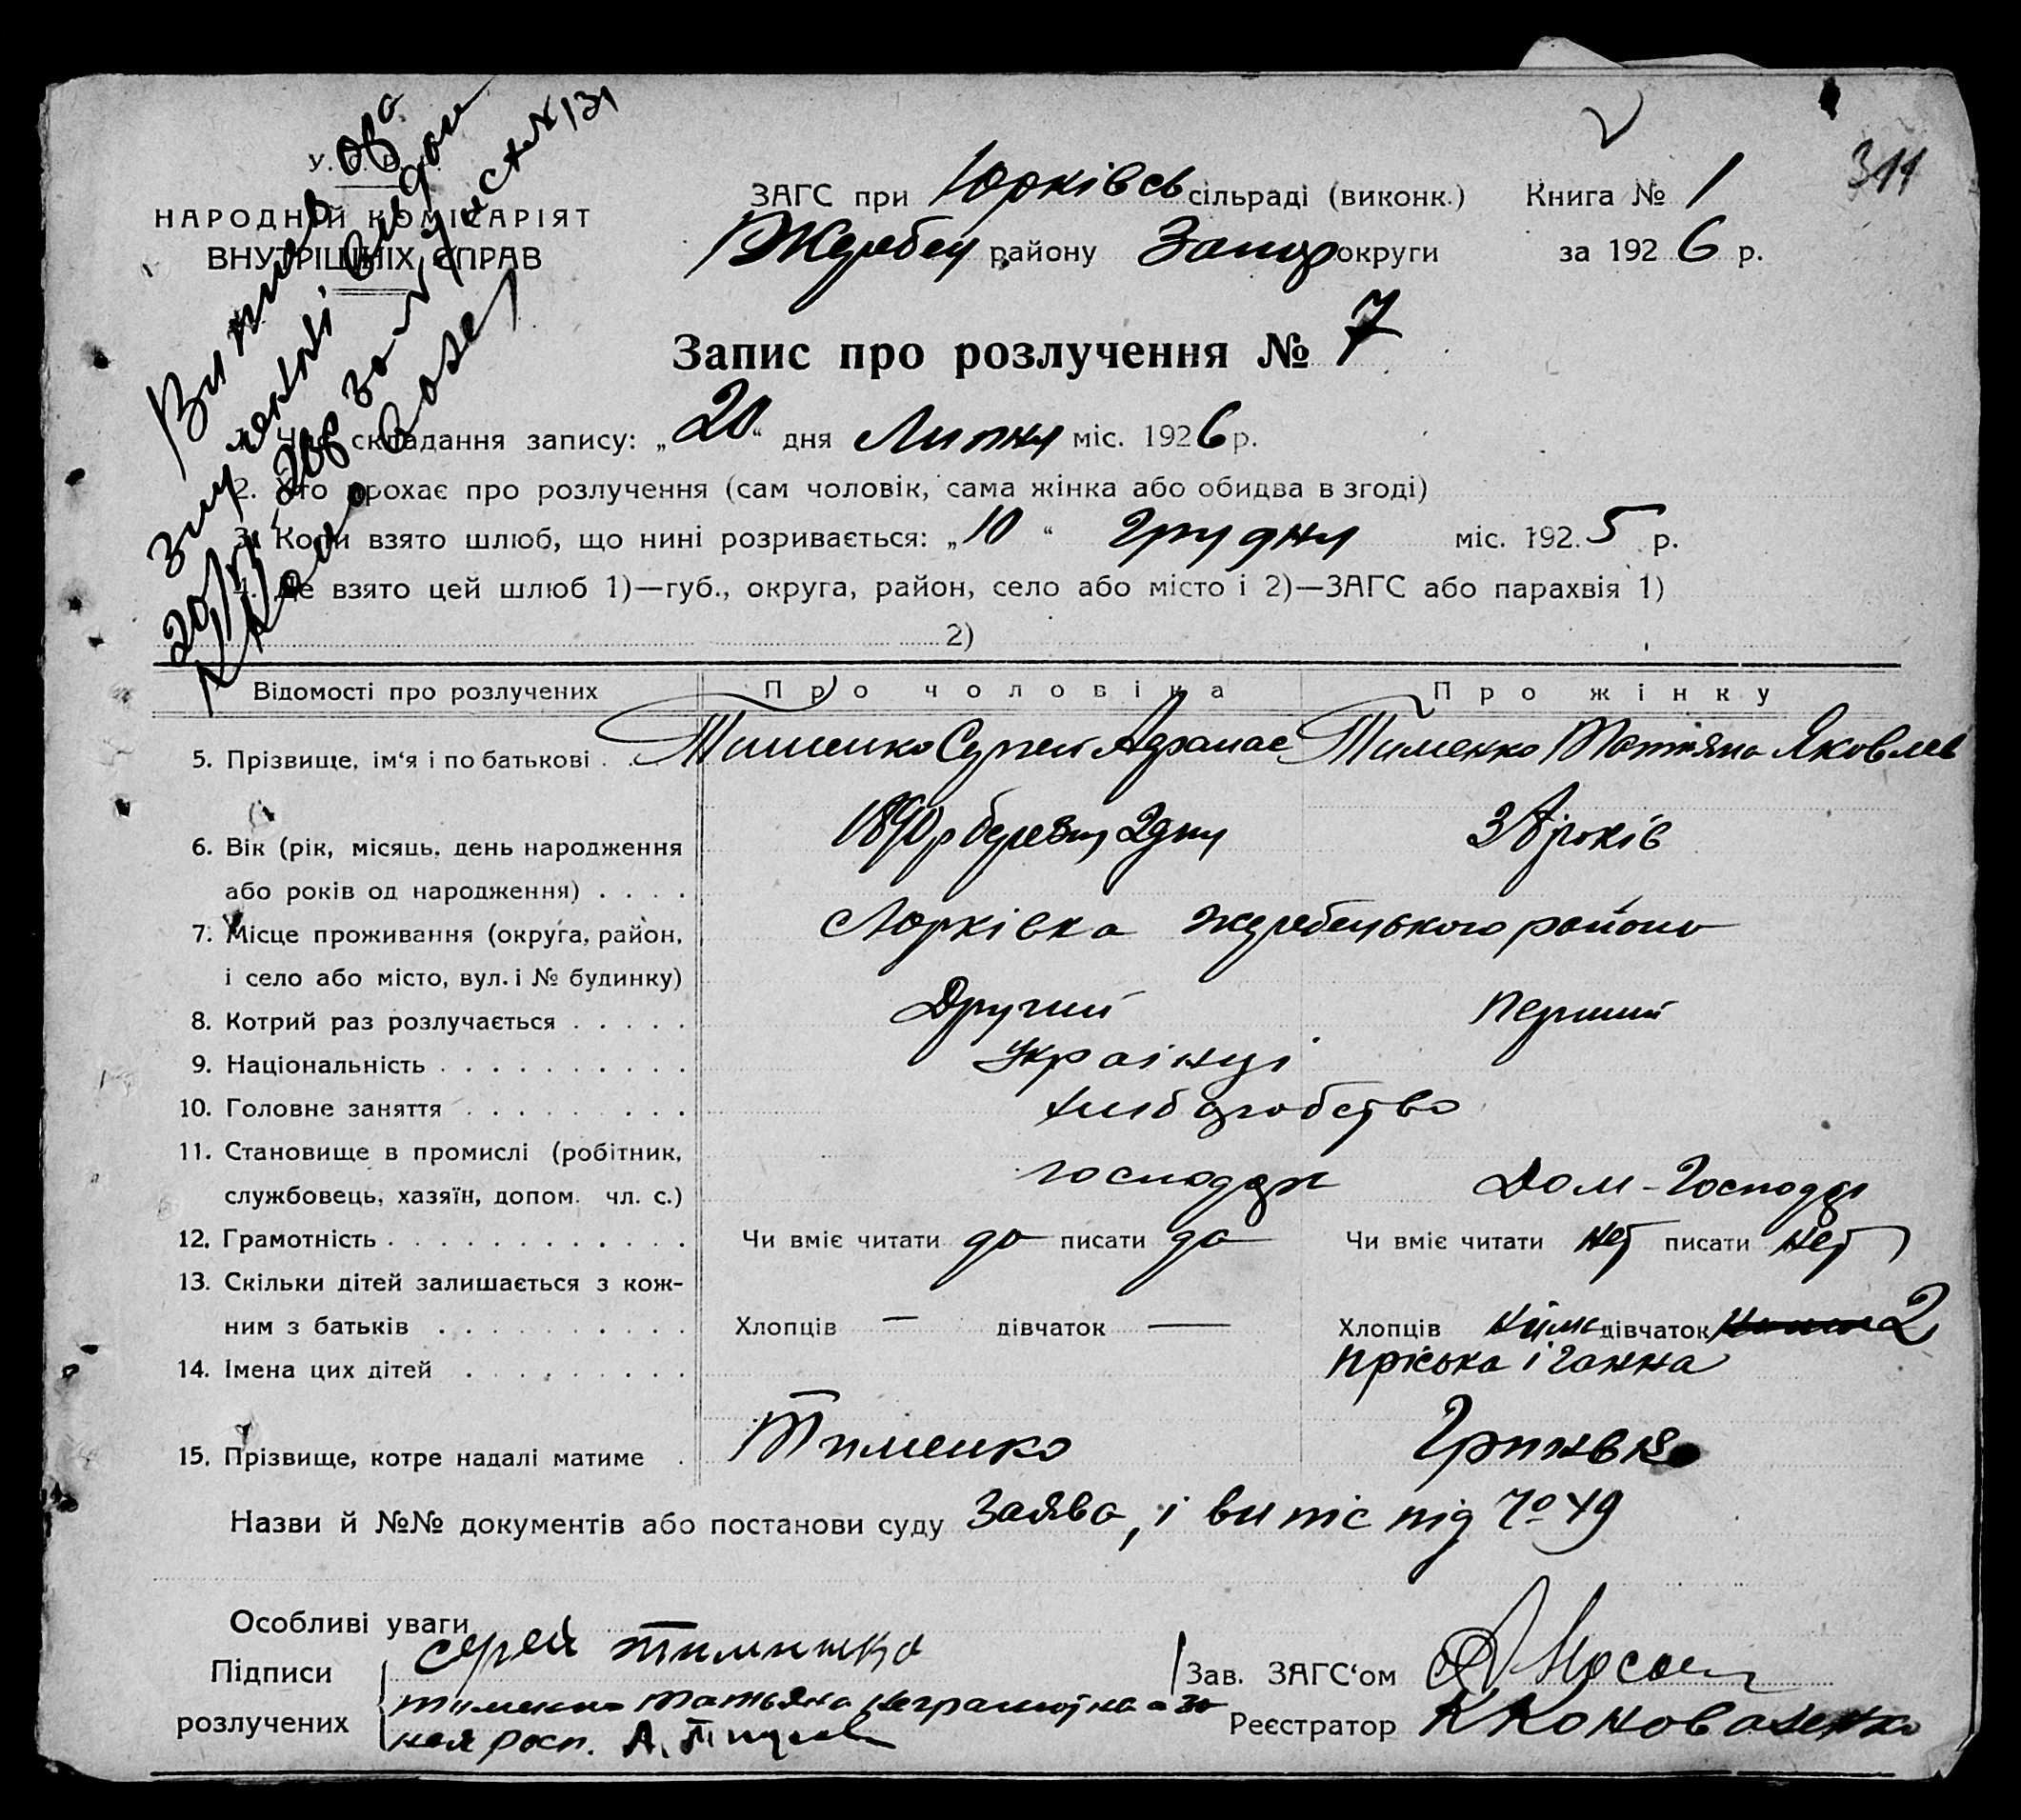 311
У.
НАРОДНІЙ КОМІСАРІЯТ
ВНУТРІШНІХ СПРАВ
ЗАГС при Юрківсь сільраді (виконк.) Книга № 1
Жеребец району Запор округи за 1926 р.
Запис про розлучення № 7
складання запису: „20“ дня Липня міс. 1926 р.
2. Хто прохає про розлучення (сам чоловік, сама жінка або обидва в згоді)
3. Коли взято шлюб, що нині розривається: „10“ Грудня міс. 1925 р.
4. Де взято цей шлюб 1)—губ., округа, район, село або місто і 2)—ЗАГС або парахвія 1)
2)
Відомості про розлучених Про чоловіка Про жінку
5. Прізвище, ім‘я і по батькові Тименко Сергей Афанас Тименко Татіяна Яковлев
6. Вік (рік, місяць, день народження 1890 р березня 2 дня років
або років од народження)
7. Місце проживання (округа, район, Юрківка Жеребецького району
і село або місто, вул. і № будинку)
8. Котрий раз розлучається Другий Перший
9. Національність Українці
10. Головне заняття хліборобство
11. Становище в промислі (робітник, господар Дом-Господар
службовець, хазяїн, допом. чл. с.)
12. Грамотність Чи вміє читати да писати да Чи вміє читати нет писати нет
13. Скільки дітей залишається з кож-
ним з батьків Хлопців — дівчаток — Хлопців дівчаток 2
14. Імена цих дітей Пріська і Ганна
15. Прізвище, котре надалі матиме Тименко
Назви й №№ документів або постанови суду Заява, і випіс під № 49
Особливі уваги
Підписи Сергей Тименко Зав. ЗАГС‘ом
розлучених Тименко Татьяна неграмотна а за
нея росп. А. Реєстратор К Коноваленко